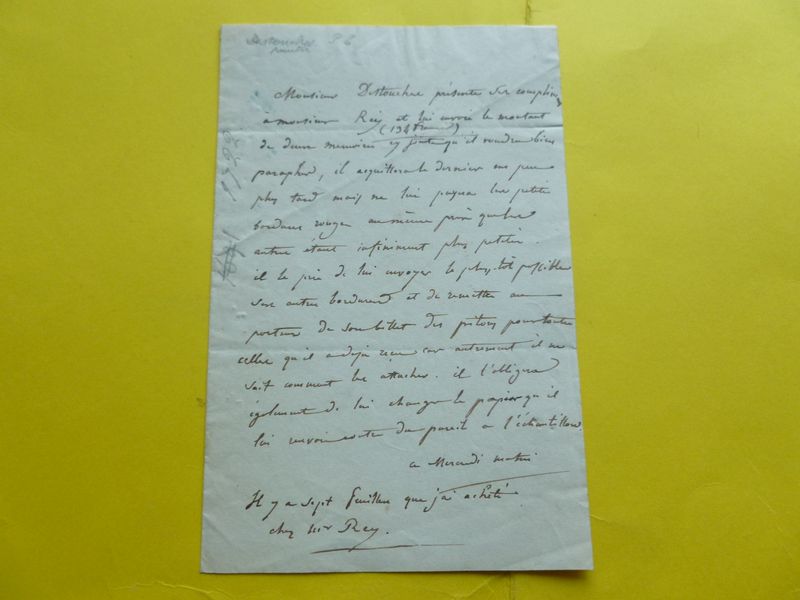 Destouches P6
peintre
Monsieur Destouches présente ses complimens
à monsieur Rey et lui envoie le montant
(134 francs)
de deux memoires cy joints qu'il voudra bien
parapher, il acquittera le dernier un peu
plus tard mais ne lui payera les petites
bordures rouges au même prix que les
autres étant infiniment plus petites.
il le prie de lui envoyer le plus tôt possible
ses autres bordures et de remettre au
porteur de son billet des pitons pour toutes
celles qu'il a déjà reçu car autrement il ne
sait comment les attacher. il l'obligera
également de lui changer le papier qu'il
lui renvoie contre du pareil a l'échantillon
ce Mercredi matin
Il y a sept feuilles que j'ai acheté
chez Mr Rey.